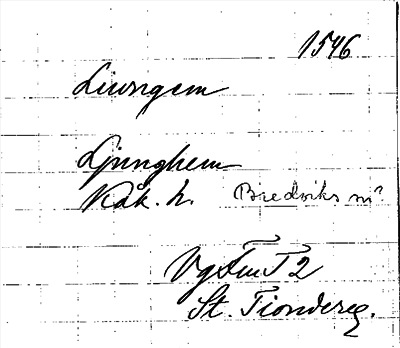 1546
Liungem
Ljunghem
Kåk. h. Bredviks m?
Vg Fm T 2
St. Tiondereg.